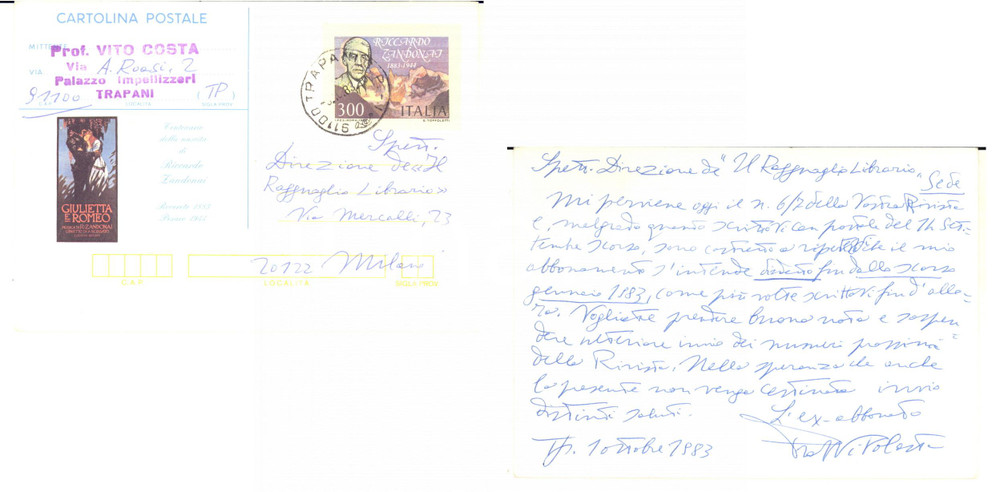 CARTOLINA POSTALE
MITTENTE
Prof. VITO COSTA
VIA
Via A. Rossi, 2
Palazzo Impellizzeri
91100 TRAPANI (TP)
LOCALITÀ SIGLA PROV.
RICCARDO
ZANDONAI
1883-1944
300 ITALIA
TRAPANI
91100
Centenario
della nascita
di
Riccardo
Zandonai
Rovereto 1883
Pesaro 1944
GIULIETTA
E ROMEO
Spett.
Direzione de «Il
Ragguaglio Librario»
Via Mercalli, 23
20122 Milano
C.A.P. LOCALITÀ SIGLA PROV.
Spett. Direzione de "Il Ragguaglio Librario"
Sede
Mi perviene oggi il n. 6/7 della Vostra Rivista
e, malgrado quanto scrittoVi con postale del 14 Set-
tembre scorso, sono costretto a ripeterVi che il mio
abbonamento s'intende disdetto fin dallo scorso
gennaio 1983, come più volte scrittoVi fin d'allo-
ra. Vogliate prendere buona nota e sospen-
dere ulteriore invio dei numeri prossimi
della Rivista. Nella speranza che anche
la presente non venga cestinata invio
distinti saluti.
L'ex-abbonato
Tp. 1 ottobre 1983